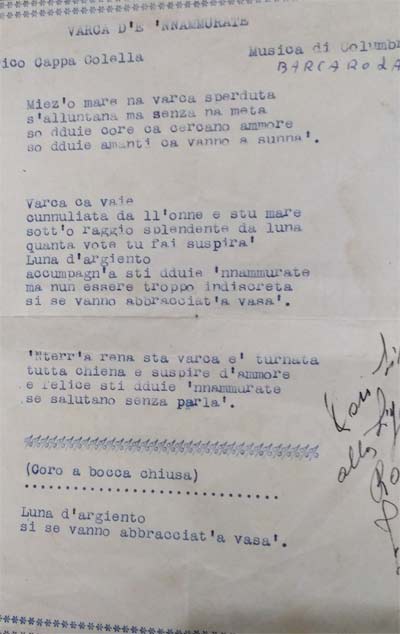 VARCA D'E 'NNAMMURATE
rico Cappa Colella Musica di Columbr
BARCAROLA
Miez'o mare na varca sperduta
s'alluntana ma senza na meta
so dduie core ca cercano ammore
so dduie amanti ca vanno a sunna'.
Varca ca vaie
cunnuliata da ll'onne e stu mare
sott'o raggio splendente da luna
quanta vote tu fai suspira'
Luna d'argiento
accumpagn'a sti dduie 'nnammurate
ma nun essere troppo indiscreta
si se vanno abbracciat'a vasa'.
'Nterr'a rena sta varca e' turnata
tutta chiena e suspire d'ammore
e felice sti dduie 'nnammurate
se salutano senza parla'.
(Coro a bocca chiusa)
Luna d'argiento
si se vanno abbracciat'a vasa'.